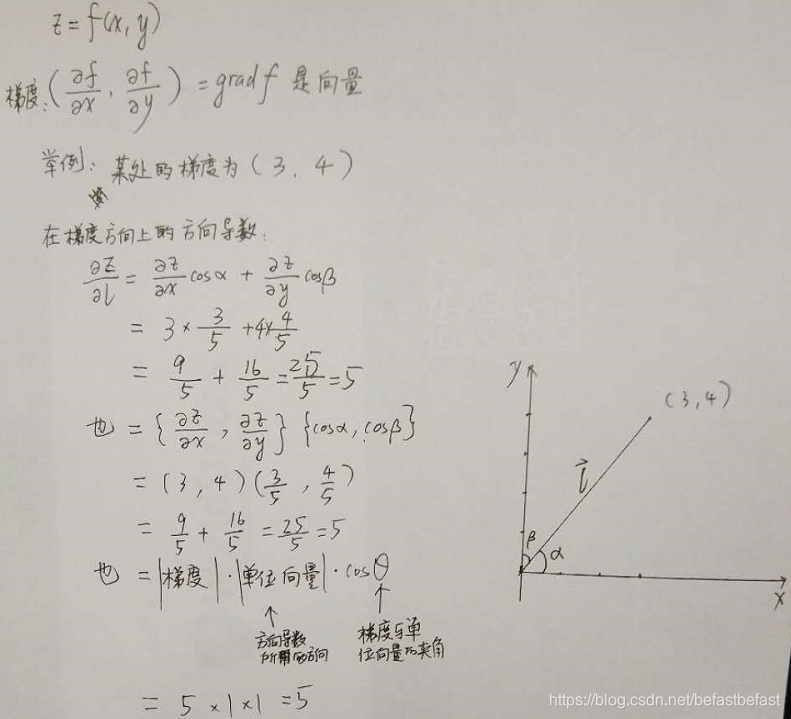 z = f(x, y)
梯度: (∂f/∂x, ∂f/∂y) = grad f 是向量
举例: 某处的梯度为 (3, 4)
在梯度方向上的方向导数:
∂z/∂l = ∂z/∂x cosα + ∂z/∂y cosβ
= 3 × 3/5 + 4 × 4/5
= 9/5 + 16/5 = 25/5 = 5
也 = {∂z/∂x, ∂z/∂y} {cosα, cosβ}
= (3, 4) (3/5, 4/5)
= 9/5 + 16/5 = 25/5 = 5
也 = |梯度| · |单位向量| · cosθ
↑
方向导数
的方向
↑
梯度与单
位向量的夹角
= 5 × 1 × 1 = 5
y
(3, 4)
l
β
α
x
https://blog.csdn.net/befastbefast